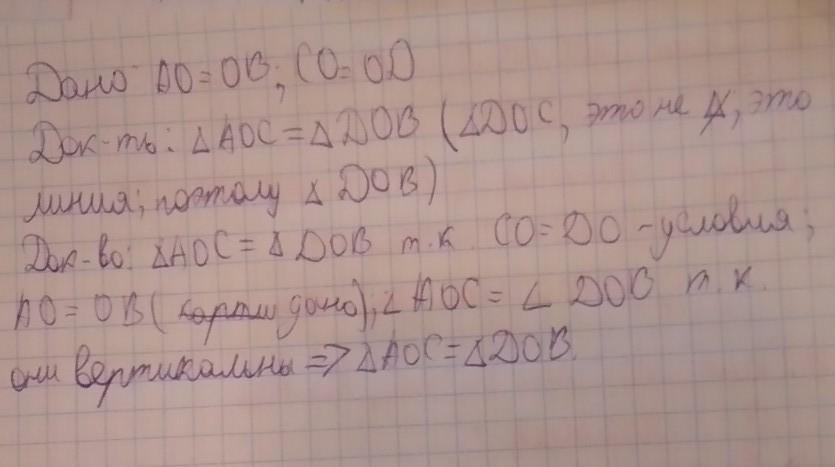 Дано: AO=OB; CO=OD
Док-ть: △AOC=△DOB (△DOC, это не, это
линия; поэтому △DOB)
Док-во: △AOC=△DOB т.к. CO=DO-условия;
AO=OB (дано), ∠AOC=∠DOB т.к.
они вертикальны => △AOC=△DOB.